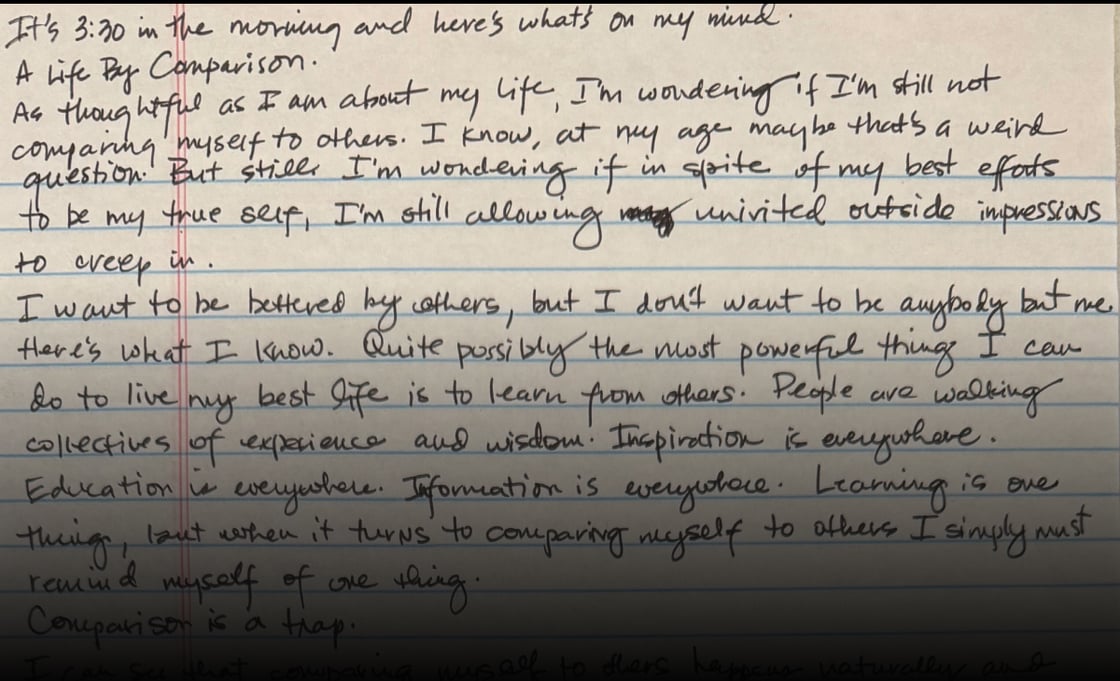 It's 3:30 in the morning and here's what's on my mind.
A Life By Comparison.
As thoughtful as I am about my life, I'm wondering if I'm still not
comparing myself to others. I know, at my age maybe that's a weird
question. But still, I'm wondering if in spite of my best efforts
to be my true self, I'm still allowing univited outside impressions
to creep in.
I want to be bettered by others, but I don't want to be anybody but me
Here's what I know. Quite possibly the most powerful thing I can
do to live my best life is to learn from others. People are walking
collectives of experience and wisdom. Inspiration is everywhere.
Education is everywhere. Information is everywhere. Learning is one
thing, but when it turns to comparing myself to others I simply must
remind myself of one thing.
Comparison is a trap.
I can see that comparing myself to others happens naturally and